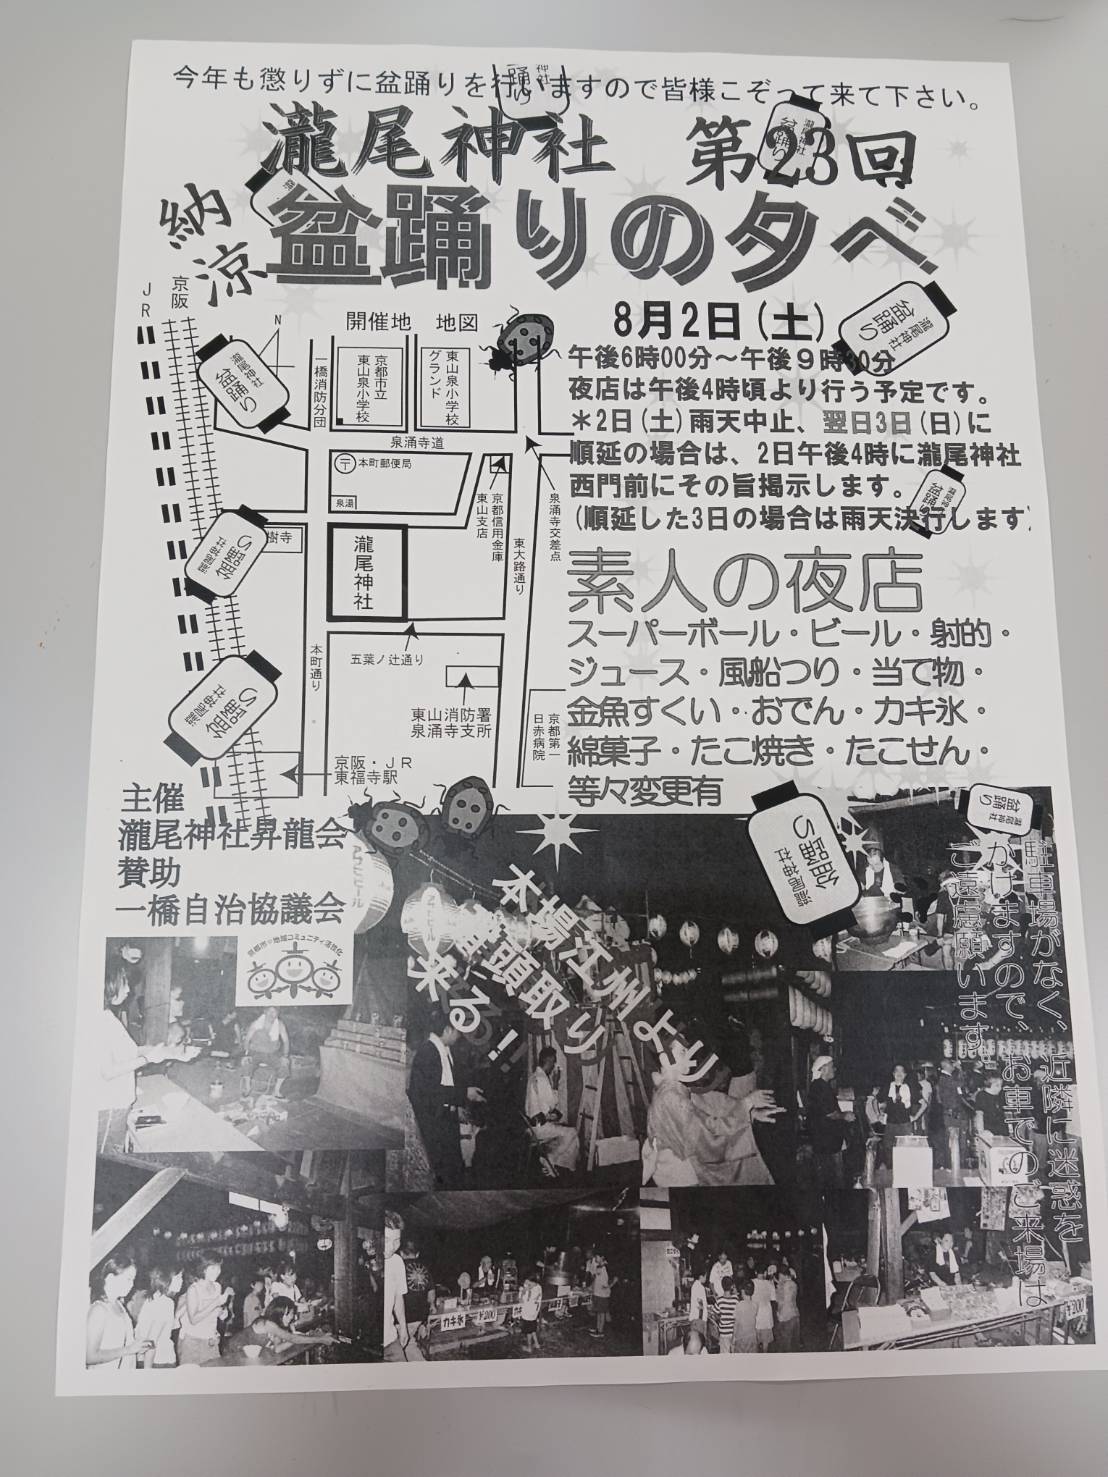 今年も懲りずに盆踊りを行いますので皆様こぞって来て下さい。
瀧尾神社 第23回
納涼
盆踊りの夕べ
8月2日(土)
午後6時00分～午後9時30分
夜店は午後4時頃より行う予定です。
＊2日(土)雨天中止、翌日3日(日)に
順延の場合は、2日午後4時に瀧尾神社
西門前にその旨掲示します。
(順延した3日の場合は雨天決行します)
素人の夜店
スーパーボール・ビール・射的・
ジュース・風船つり・当て物・
金魚すくい・おでん・カキ氷・
綿菓子・たこ焼き・たこせん・
等々変更有
開催地 地図
JR
京阪
N
一橋消防分団
京都市立
東山泉小学校
東山泉小学校
グランド
泉涌寺道
〒本町郵便局
泉湯
京都信用金庫
東山支店
泉涌寺交差点
東大路通り
樹寺
瀧尾神社
五葉ノ辻通り
本町通り
東山消防署
泉涌寺支所
京都第一
日赤病院
京阪・JR
東福寺駅
主催
瀧尾神社昇龍会
賛助
一橋自治協議会
京都市 地域コミュニティ活性化
本場江州より
音頭取り
来る!!
駐車場がなく、近隣に迷惑を
かけますので、お車でのご来場は
ご遠慮願います。
瀧尾神社
盆踊り
瀧尾神社
盆踊り
瀧尾神社
盆踊り
瀧尾神社
盆踊り
瀧尾神社
盆踊り
瀧尾神社
盆踊り
瀧尾神社
盆踊り
瀧尾神社
盆踊り
カキ氷
¥200
¥200